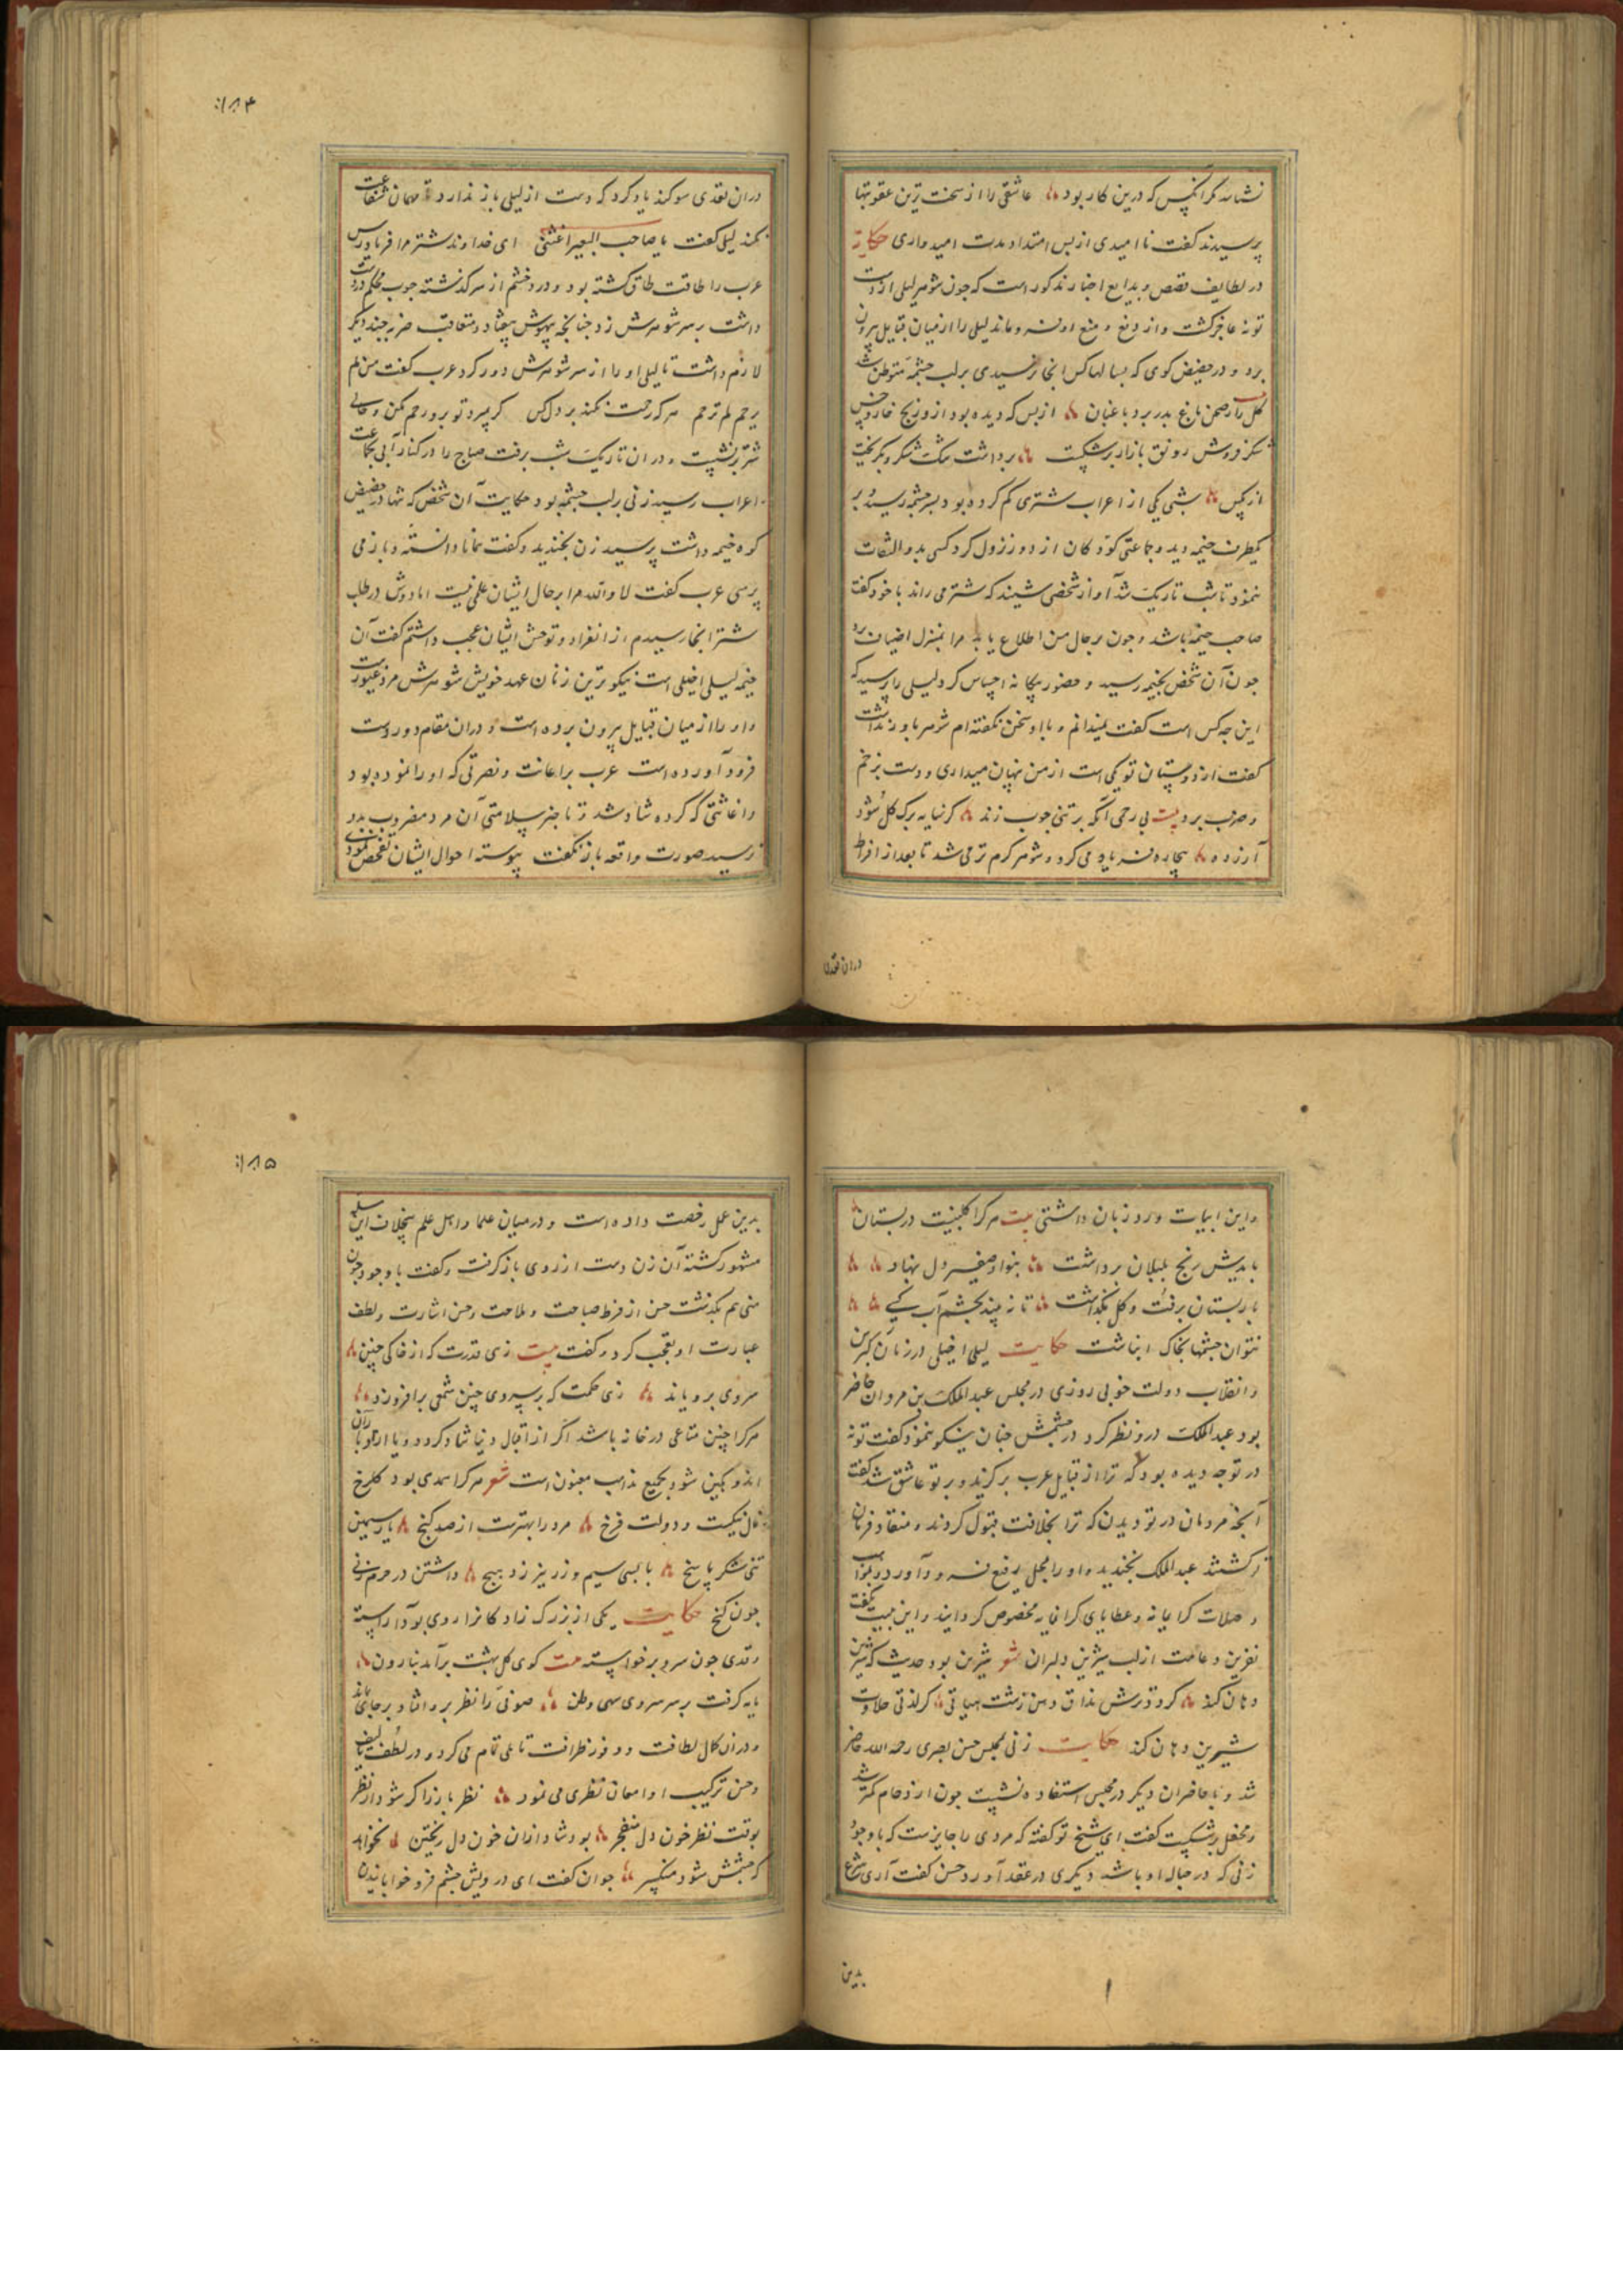 نشاند مگر آنکس که درین کار بود عاشقی را از سخت ترین عقوبتها
پرسیدند گفت نا امیدی از پس امتداد مدت امیدواری حکایة
در لطایف قصص و بدایع اخبار مذکور است که چون شوهر لیلی از دست
توبه عاجز گشت و از دفع و منع او فرو ماند لیلی را از میان قبایل بیرون
برد و در حضیض کوی که بسالها کس انجا نرسیدی بر لب چشمه متوطن شد
گل را ز صحن باغ بدر برد باغبان از بس که دیده بود ازو رنج خار و خس
شکر فروش رونق بازار بر شکست برداشت تنگ شکر و بگریخت
از مگس شبی یکی از اعراب شتری گم کرده بود بسر چشمه رسید و بر
یکطرف خیمه دید و جماعتی کودکان از دور نزول کرد کسی بدو التفات
ننمود تا شب تاریک شد آواز شخصی شنید که شتر می راند با خود گفت
صاحب خیمه باشد و چون بر حال من اطلاع یابد مرا بمنزل اضیاف برد
چون آن شخص بخیمه رسید و حضور بیگانه احساس کرد لیلی را پرسید که
این چه کس است گفت نمیدانم و با او سخن نگفته ام شوهر باور نداشت
گفت از دوستان تو یکی است از من نهان میداری و دست بزخم
و ضرب برد بیت بی رحمی آنکه بر تنی چوب زند کز سایه برگ گل شود
آزرده بیچاره فریاد می کرد و شوهر گرم تر می شد تا بعد از افراط
دران تعدی
۱۸۴
دران تعدی سوگند یاد کرد که دست از لیلی باز ندارد تا مهمان شفاعت
نکند لیلی گفت یا صاحب البعیر اغثنی ای خداوند شتر مرا فریاد رس
عرب را طاقت طاق گشته بود و درد خشم از سر گذشته چوب محکم در دست
داشت بر سر شوهرش زد چنانچه بیهوش بیفتاد و متعاقب ضربه چند دیگر
لازم داشت تا لیلی او را از سر شوهرش دور کرد عرب گفت من لم
یرحم لم ترحم هر که رحمت نکند بر دل کس گر بمیرد تو برو رحم مکن و حالی
شتر نشست و دران تاریک شب برفت صباح را در کنار آبی بجماعت
اعراب رسید زنی بر لب چشمه بود حکایت آن شخص که تنها در حضیض
کوه خیمه داشت پرسید زن بخندید و گفت همانا دانسته و باز می
پرسی عرب گفت لا والله مرا بر حال ایشان علمی نیست اما دوش در طلب
شتر انجا رسیدم از انفراد و توحش ایشان عجب داشتم گفت آن
خیمه لیلی اخیلی است نیکو ترین زنان عهد خویش شوهرش مرد غیورست
و او را از میان قبایل بیرون برده است و دران مقام دور دست
فرود آورده است عرب بر اعانت و نصرتی که او را نموده بود
و اغاثتی که کرده شاد شد و تا خبر سلامتی آن مرد مضروب بدو
نرسید صورت واقعه باز نگفت پیوسته احوال ایشان تفحص نمودی
و این ابیات ورد زبان داشتی بیت هر کرا گلبنیست در بستان
بایدش رنج بلبلان برداشت بنوا و صفیر دل بنهاد
یا ز بستان برفت و گل بگذاشت تا نه بیند بچشم آب کسی
نتوان چشمها بخاک انباشت حکایت لیلی اخیلی در زمان کبر سن
و انقلاب دولت خوبی روزی در مجلس عبد الملک بن مروان حاضر
بود عبد الملک درو نظر کرد در چشمش چنان نیکو ننمود گفت توبه
در تو چه دیده بود که ترا از قبایل عرب برگزید و بر تو عاشق شد گفت
آنچه مردمان در تو دیدند که ترا بخلافت قبول کردند و منقاد فرمان
گشتند عبد الملک بخندید و او را بمحل رفیع فرود آورد و بمواهب
و صلات گرامایه و عطایای گرانمایه مخصوص گردانید و این بیت بگفت
نفرین و دعات از لب شیرین دلبران شعر شیرین بود حدیث که شیرین
دهان کند گرد ترش مذاق و من زشت هیاتی گر لذتی حلاوت
شیرین دهان کند حکایت زنی بمجلس حسن بصری رحمه الله حاضر
شد و با حاضران دیگر در مجلس استفاده نشست چون ازدحام کمتر شد
و محفل بر شکست گفت ای شیخ تو گفته که مردی را جایزست که با وجود
زنی که در حباله او باشد دیگری در عقد آورد حسن گفت آری شرع
بدین
۱۸۵
بدین عمل رخصت داده است و در میان علما و اهل علم بیخلاف این مسله
مشهور گشته آن زن دست از روی باز گرفت و گفت با وجود چون
منی هم بگذشت حسن از فرط صباحت و ملاحت و حسن اشارت و لطف
عبارت او تعجب کرد و گفت بیت زهی قدرت که از خاکی چنین
سروی برویاند زهی حکمت که بر سروی چنین شمعی برافروزد
هر کرا چنین متاعی در خانه باشد اگر از اقبال دنیا شاد گردد و یا از ادبار آن
اندوهگین شود بجمیع مذاهب مغبون است شعر هر کرا همدمی بود گلرخ
فال نیکست و دولت فرخ مرد را بهترست از صد گنج یار سیمین
تنی شکر پاسخ با بسی سیم و زر نیرزد هیچ داشتن در حرم زنی
چون کخ حکایت یکی از بزرگ زادگان را روی بود آراسته
و قدی چون سرو بر خواسته بیت گوی گل بهشت برآمد بنارون
یا مه گرفت بر سر سروی سهی وطن صوفی را نظر برو افتاد بر جای بماند
و دران کمال لطافت و وفور ظرافت تاملی تمام می کرد و در لطف تالیف
و حسن ترکیب او امعان نظری می نمود نظر باز ار کر شود از نظر
بوقت نظر خون دل منفجر بود شاد ازان خون دل ریختن نخواهد
که چشمش شود منکسر جوان گفت ای درویش چشم فرو خوابانیدن